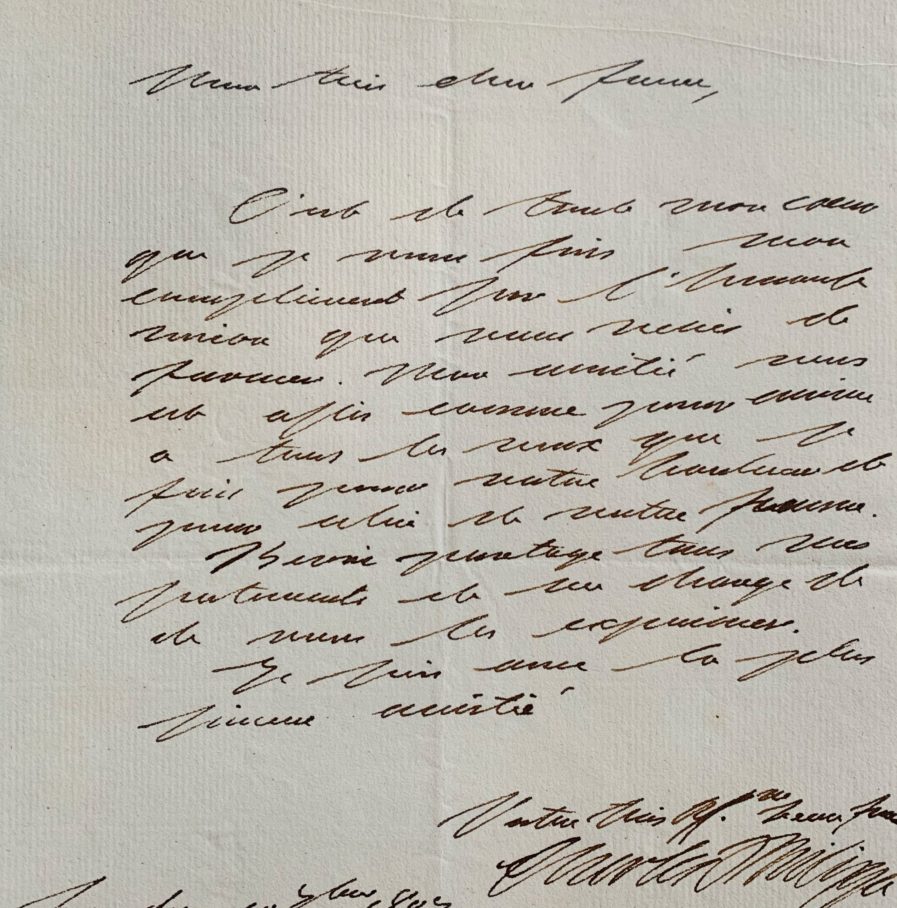 Mon très cher frère,
C'est de tout mon coeur
que je vous fais mon
compliment sur l'heureuse
union que vous venez de
former. Mon amitié vous
est assez connue pour croire
à tous les voeux que je
fais pour votre bonheur et
pour celui de votre femme.
partage tous mes
sentiments et me charge de
de vous les exprimer.
Je suis avec la plus
sincère amitié
Votre très aff.né beau frère
Charles